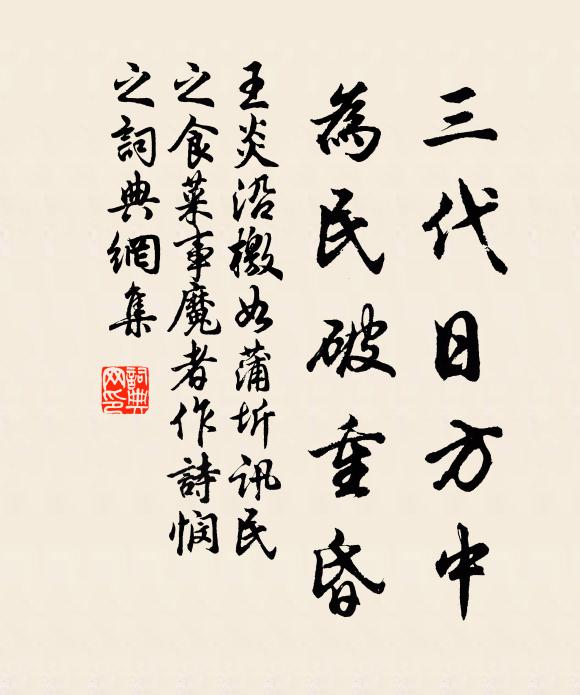 三代日方中
為民破重昏
王炎沿檄如蒲圻訊民
之食菜事魔者作詩憫
之詞典網集
詞典
網印